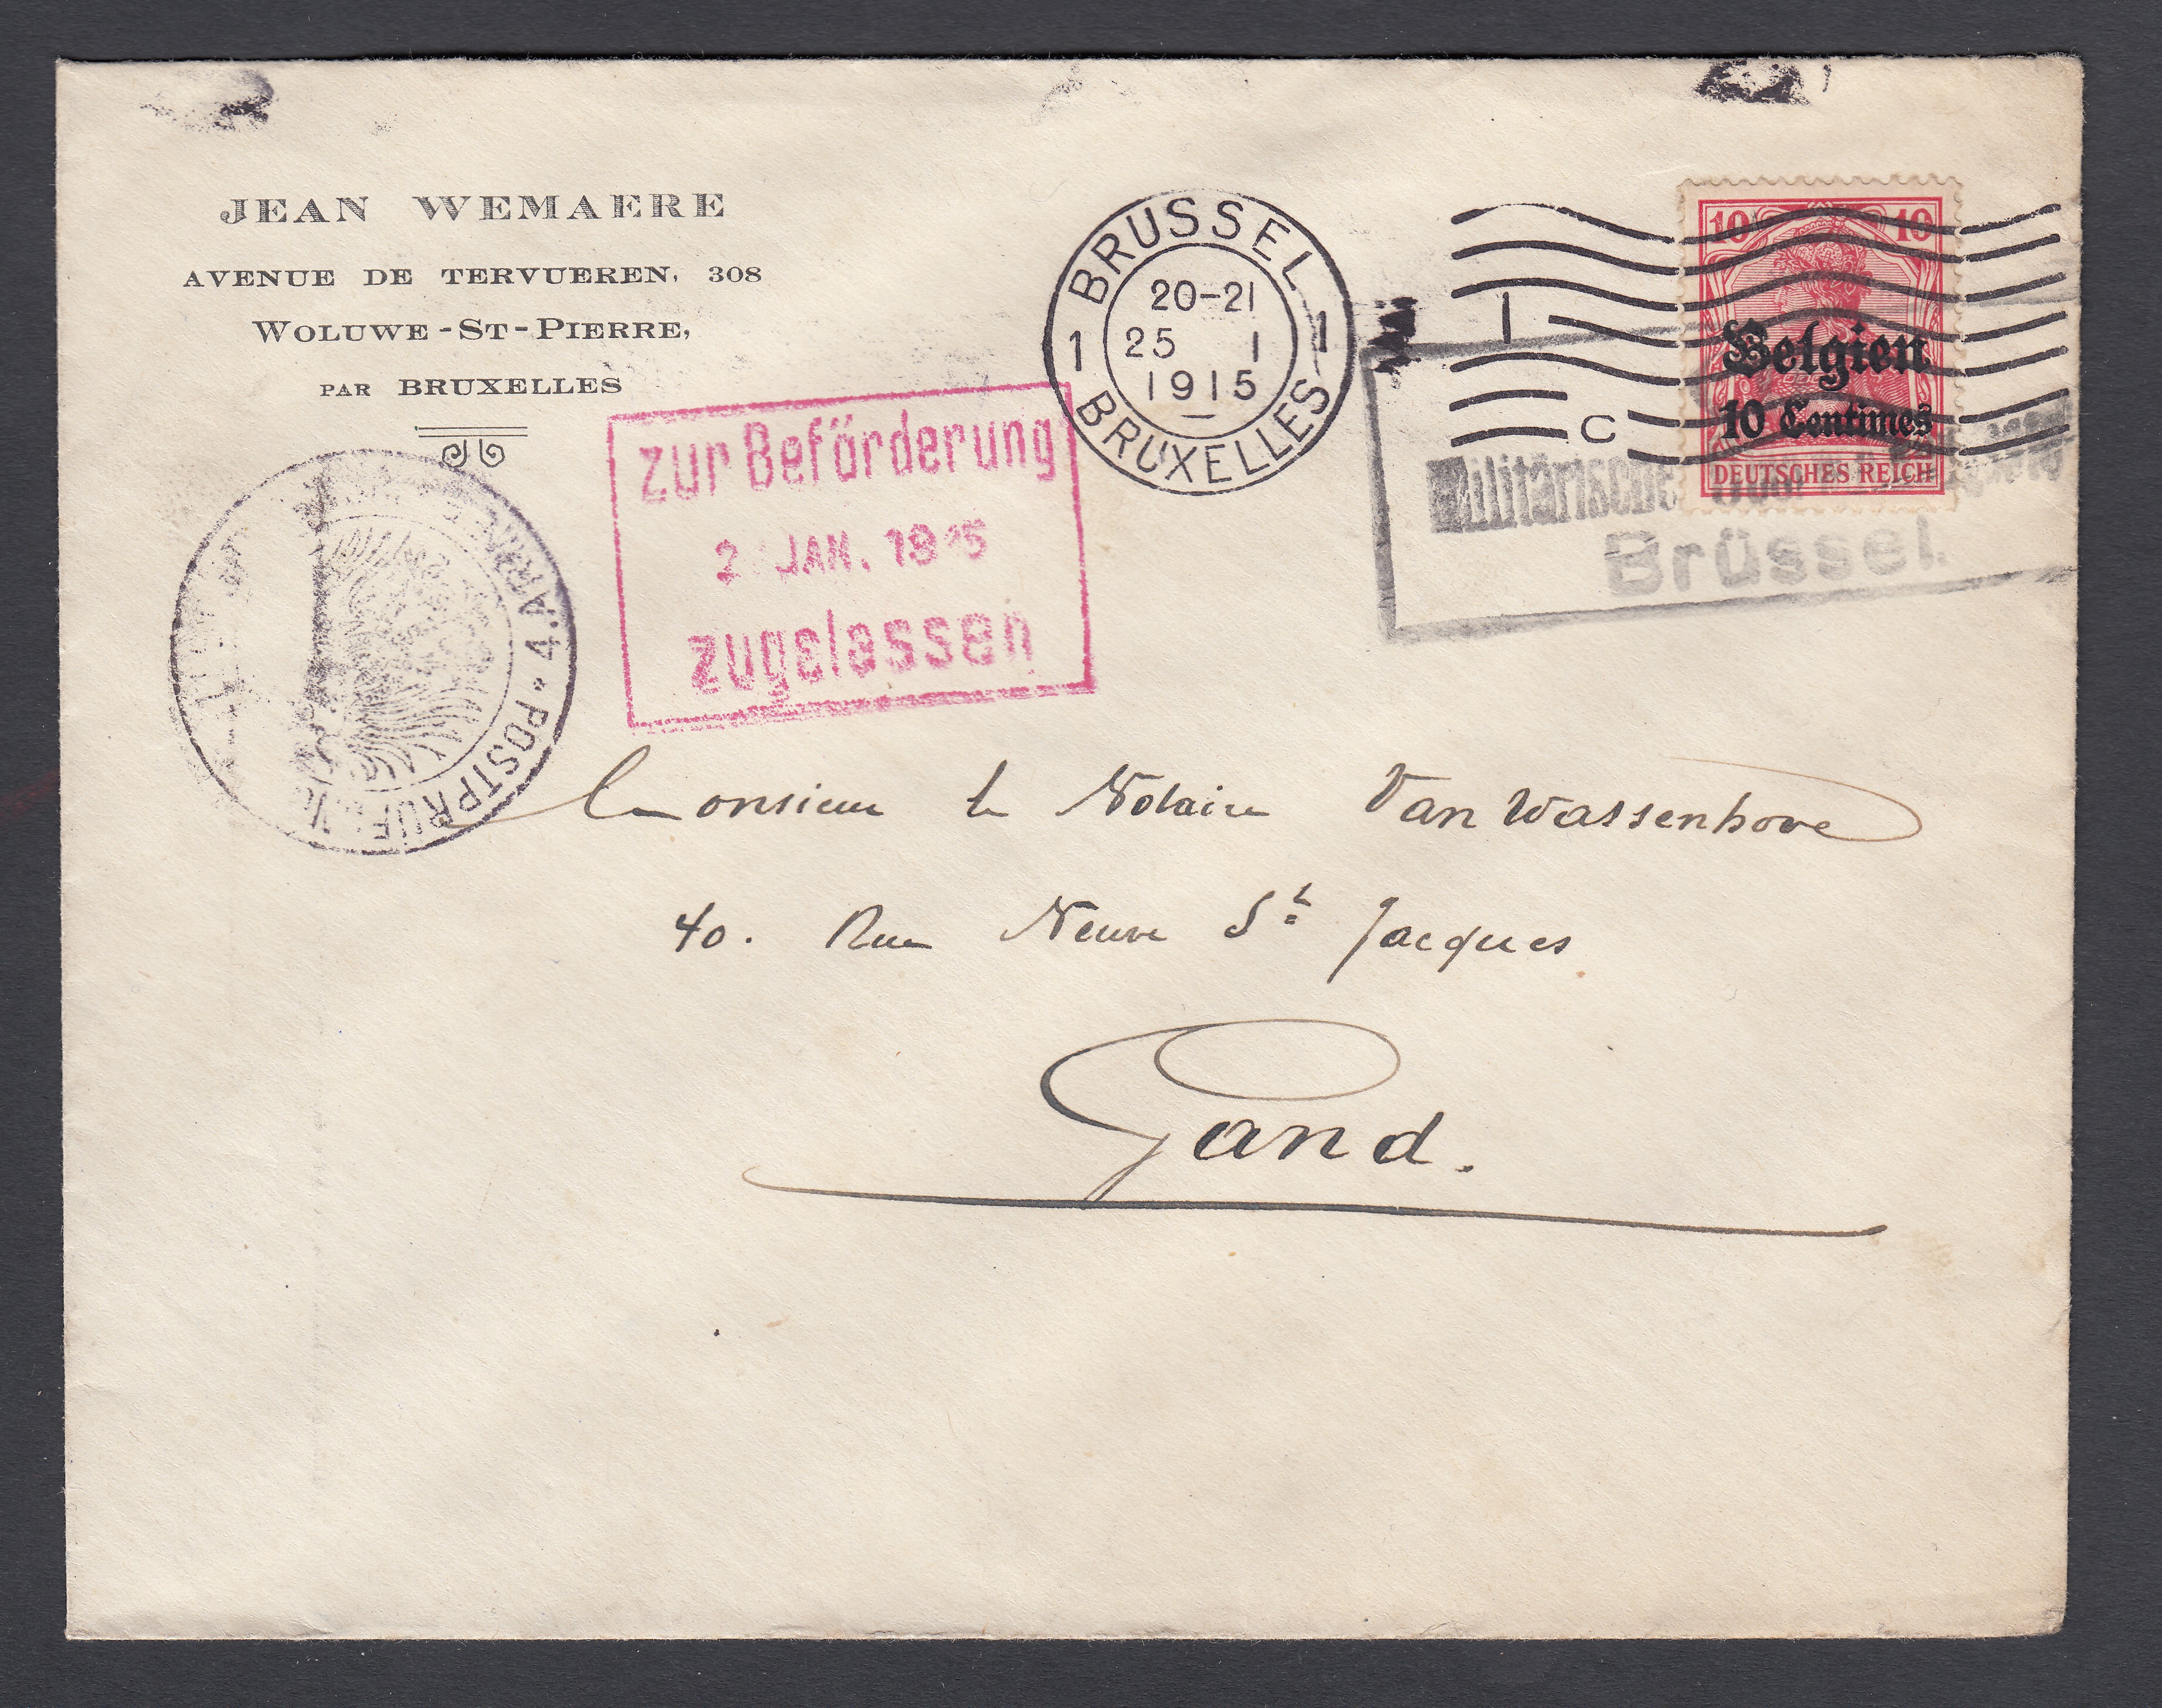 JEAN WEMAERE
AVENUE DE TERVUEREN, 308
WOLUWE-ST-PIERRE,
PAR BRUXELLES
BRUSSEL
1 1
20-21
25 1
1915
BRUXELLES
1
C
10 10
Belgien
10 Centimes
DEUTSCHES REICH
Militärische
Brüssel.
zur Beförderung
JAN. 1915
zugelassen
4. ARMEE
POSTPRÜF
Monsieur le Notaire Van Wassenhove
40. Rue Neuve St Jacques
Gand.